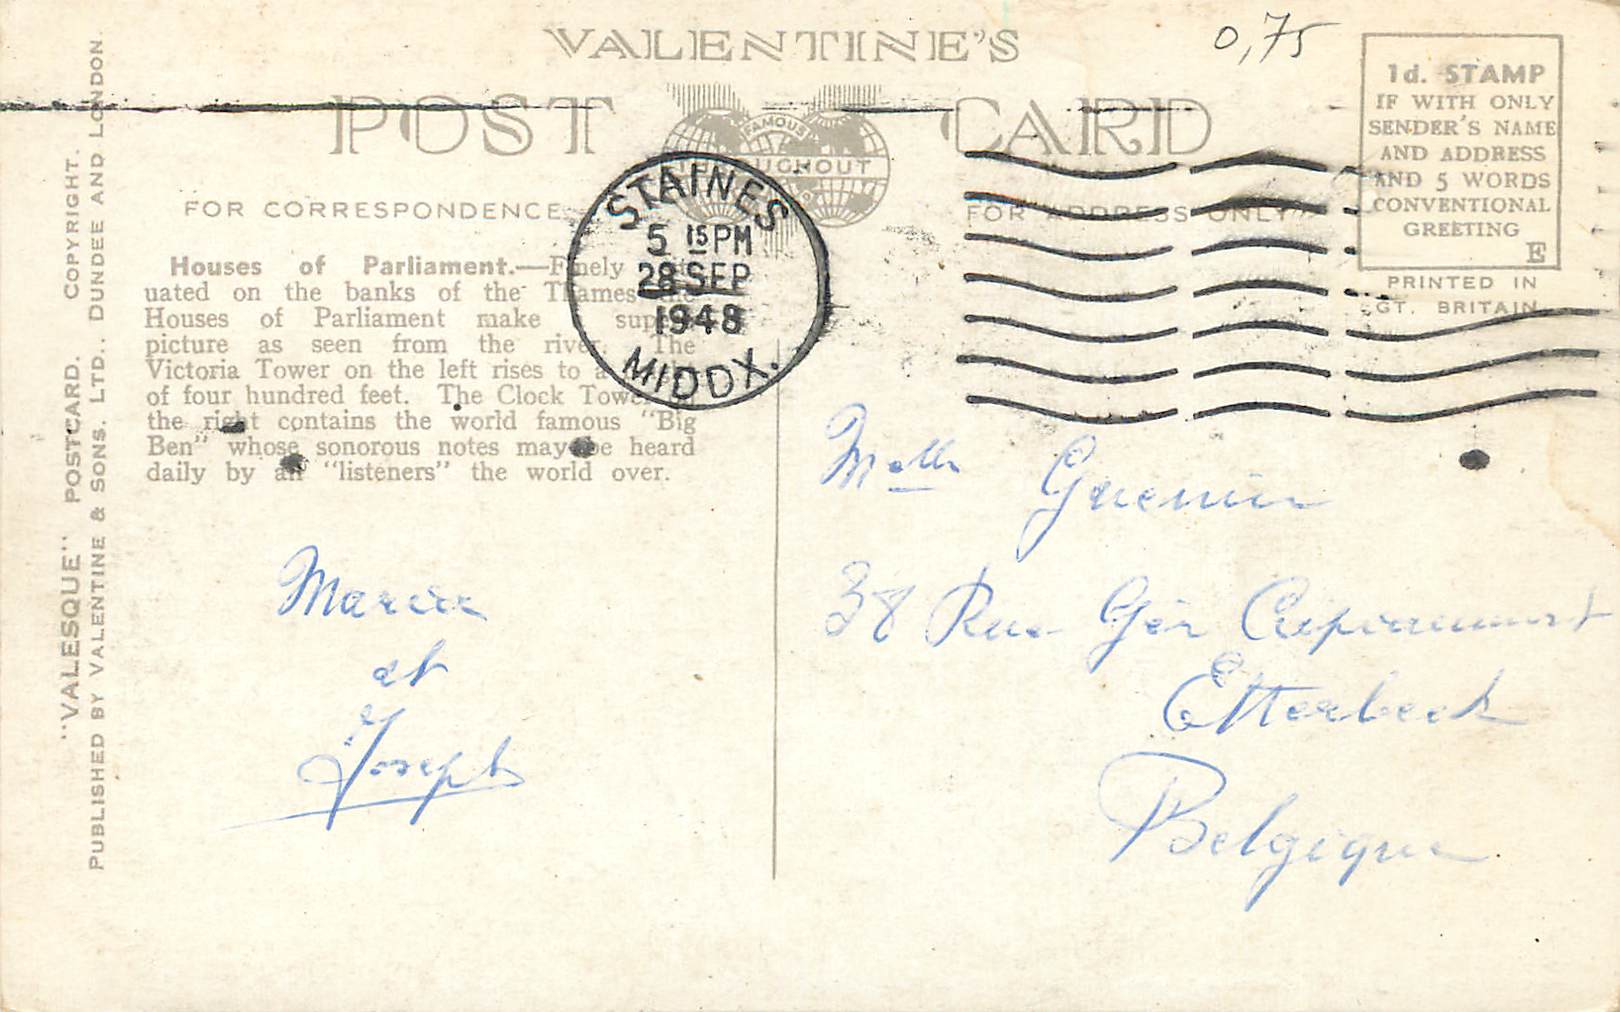 VALENTINE'S
0,75
POST CARD
FAMOUS
THROUGHOUT
1d. STAMP
IF WITH ONLY
SENDER'S NAME
AND ADDRESS
AND 5 WORDS
CONVENTIONAL
GREETING
E
PRINTED IN
GT. BRITAIN
FOR CORRESPONDENCE
FOR ADDRESS ONLY
STAINES
5 15 PM
28 SEP
1948
MIDDX.
Houses of Parliament.—Finely
uated on the banks of the Thames
Houses of Parliament make sup
picture as seen from the river. The
Victoria Tower on the left rises to a
of four hundred feet. The Clock Tower
the right contains the world famous "Big
Ben" whose sonorous notes may be heard
daily by all "listeners" the world over.
"VALESQUE" POSTCARD. COPYRIGHT.
PUBLISHED BY VALENTINE & SONS. LTD., DUNDEE AND LONDON.
et
Joseph
Melle
38 Rue Gén
Etterbeek
Belgique